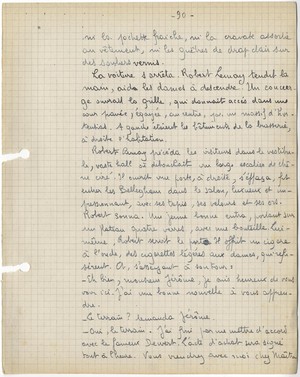 - 90 -
ni la pochette fraîche, ni la cravate assortie
au vêtement, ni les guêtres de drap clair sur
des souliers vernis.
La voiture s'arrêta. Robert Lemay tendit la
main, aida les dames à descendre. Un concier-
ge ouvrait la grille, qui donnait accès dans une
cour pavée, égayée, au centre, par un massif d'hor-
tensias. A gauche étaient les bâtiments de la brasserie,
à droite l'habitation.
Robert Lemay précéda les visiteurs dans le vestibu-
le, vaste hall où débouchait un large escalier de chê-
ne ciré. Il ouvrit une porte, à droite, s'effaça, fit
entrer les dans le salon, luxueux et im-
personnel, avec ses tapis, ses velours et ses ors.
Robert sonna. Une jeune bonne entra, portant sur
un plateau quatre verres, avec une bouteille. Lui-
même, Robert servit le porto. Il offrit un cigare
à des cigarettes légères aux dames, qui re-
fusèrent. Or, s'adressant à son tour :
- Eh bien, monsieur Jérôme, je suis heureux de vous
voir ici. J'ai une bonne nouvelle à vous appren-
dre.
- Le terrain ? demanda Jérôme.
- Oui, le terrain. J'ai fini par me mettre d'accord
avec le fameux L'acte d'achat sera signé
tout à l'heure. Vous viendrez avec moi chez Maître